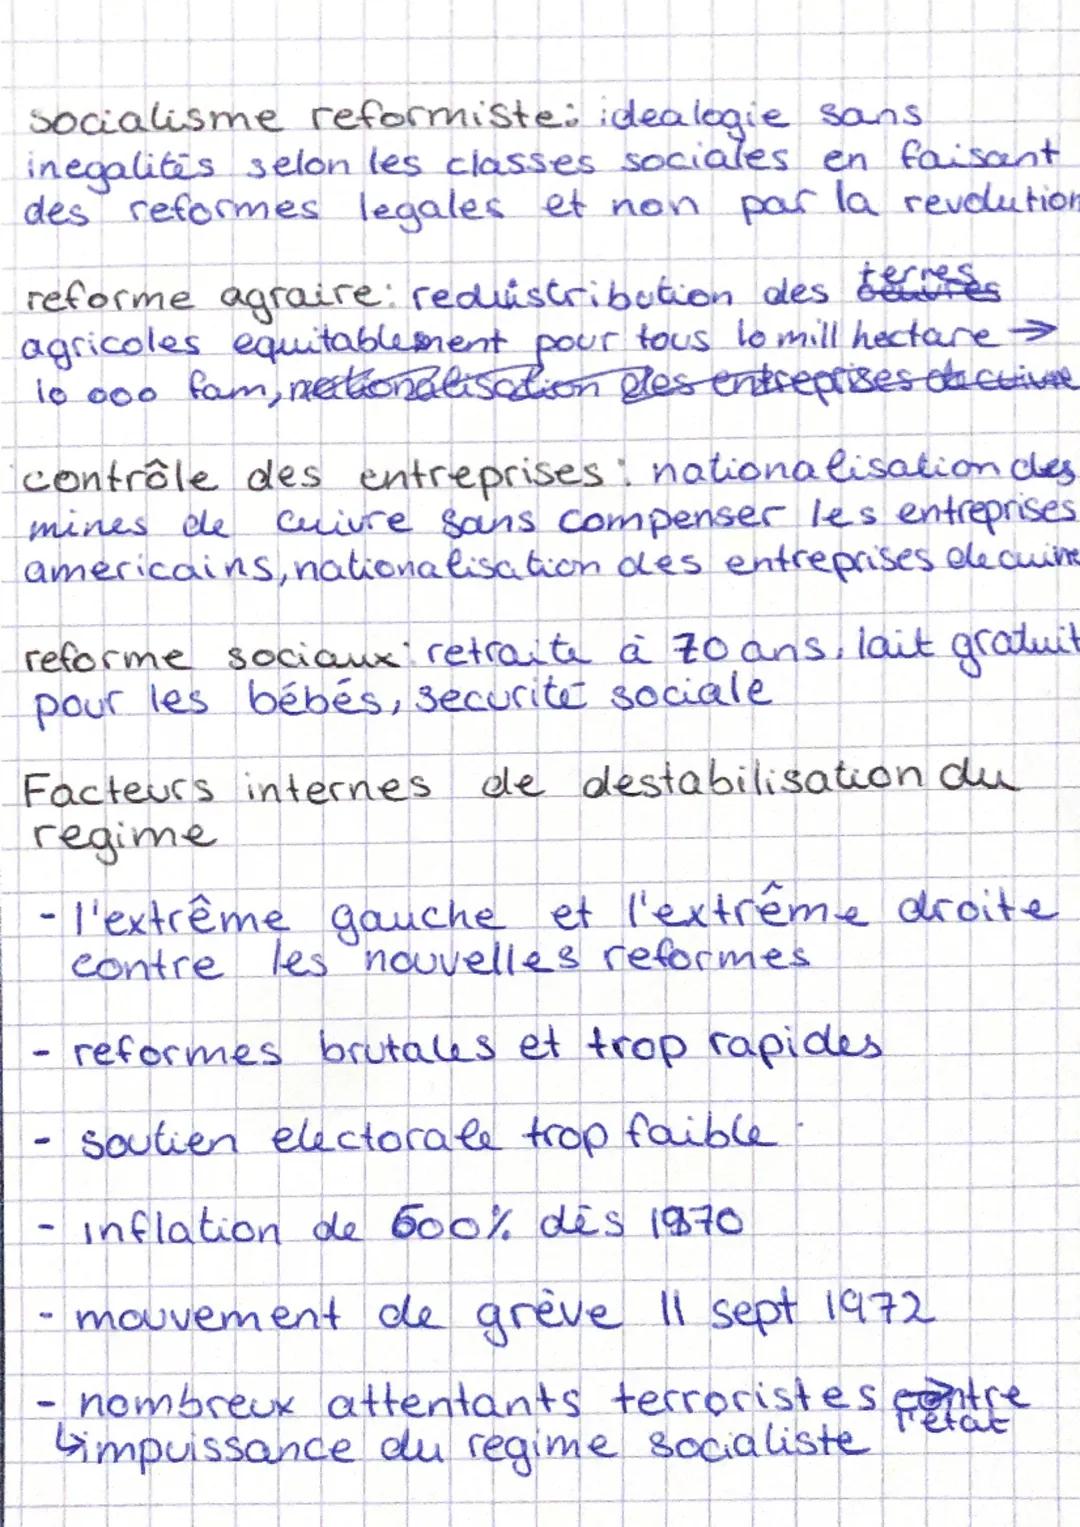 socialisme reformiste: idealogie sans
inegalités selon les classes sociales en faisant
des reformes legales et non par la revolution
reforme agraire: reduistribution des terres
agricoles equitablement pour tous 10 mill hectare →
10 000 fam, nationalisation des entreprises de cuivre
contrôle des entreprises: nationalisation des
mines de cuivre sans compenser les entreprises
americains, nationalisation des entreprises de cuivre
reforme sociaux: retraite à 70 ans, lait gratuit
pour les bébés, securité sociale
Facteurs internes de destabilisation du
regime
- l'extrême gauche et l'extrême droite
contre les nouvelles reformes
- reformes brutales et trop rapides
- soutien electorale trop faible
- inflation de 600% dès 1970
- mouvement de grève 11 sept 1972
- nombreux attentants terroristes contre
l'état
↳ impuissance du regime socialiste